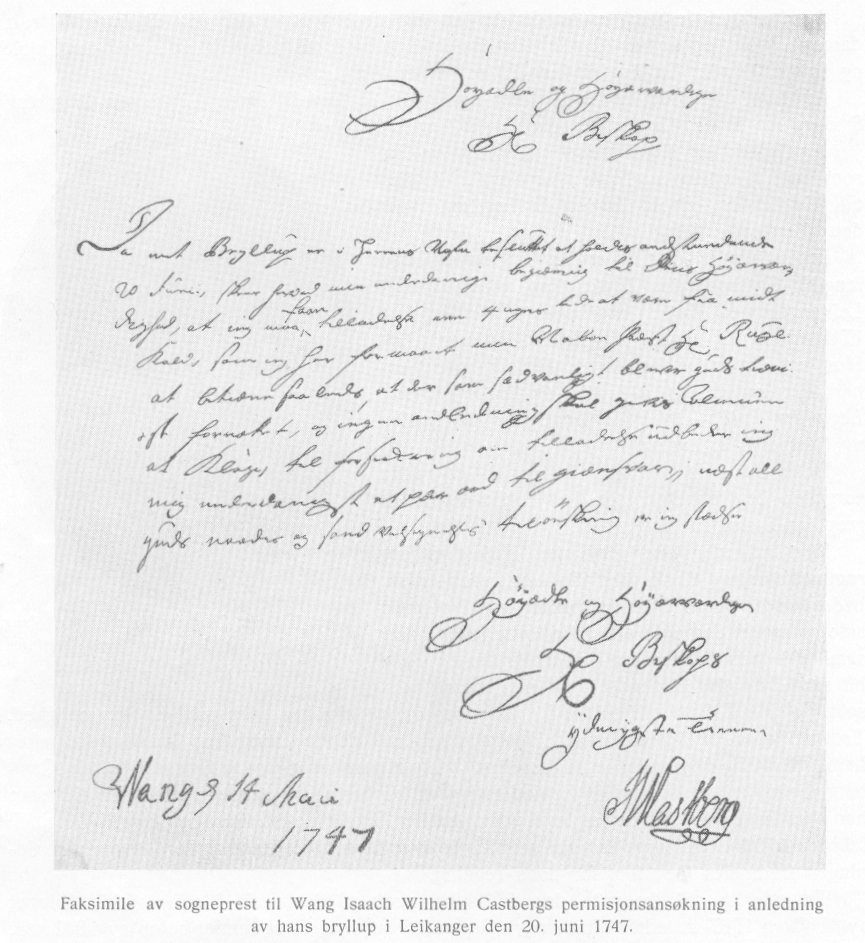 Höyædle og Höyærværdige
Hr Biskop
Da mit Bryllup er i Herrens Nafn besluttet at holdes anstundende
20 Junii, skeer herved min underdanige begiæring til Deris Höyærvær
dighed, at ieg maa faae tilladelse une 4 uger tide at være fra mit
Kald, som ieg har formaaet min Nabo Præst Hr
at betiene saaledes, at der som sædvanligt bliver guds tieni
st forrættet, og ingen anledning skal gives
at Klage, til forsikring om tilladelse udbeder ieg
mig underdanigst et par ord til giensvar, næst all
guds naades og sand Velsignelses tilönskning er ieg stedse
Höyædle og Höyærværdige
Hr Biskops
ydmygste Tienere
Wang d 14 Maii
1747
IWCastberg
Faksimile av sogneprest til Wang Isaach Wilhelm Castbergs permisjonsansøkning i anledning
av hans bryllup i Leikanger den 20. juni 1747.